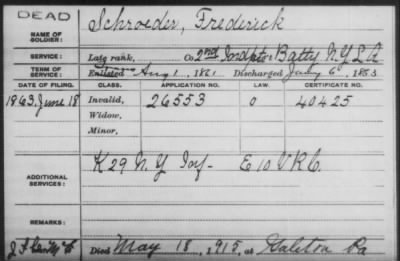 DEAD
NAME OF SOLDIER: Schroeder, Frederick
SERVICE: Late rank, Co. 2nd Indpt. Batty N.Y. L A
TERM OF SERVICE: Enlisted Aug 1, 1861 Discharged
DATE OF FILING. CLASS. APPLICATION NO. LAW. CERTIFICATE NO.
1863, June 18 Invalid, 26553 0 40425
Widow,
Minor,
ADDITIONAL SERVICES: K 29 N.Y. Inf - E 10 V.R.C.
REMARKS:
Died May 18, 1915, at Galeton Pa